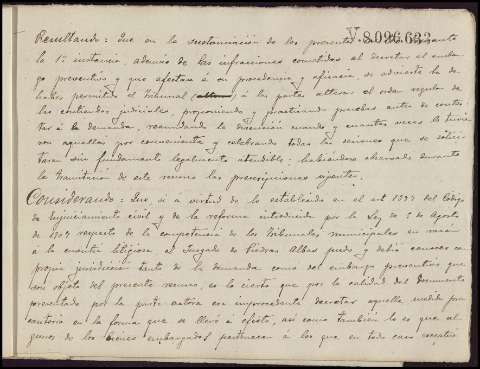 V.8.096.633
Resultando: Que en la sustanciación de los presentes autos durante
la 1ª instancia, además de las infracciones cometidas al decretar el embar
go preventivo y que afectan á su procedencia y eficacia, se advierte la de
haber permitido el Tribunal á las partes alterar el orden regular de
las contiendas judiciales, proponiendo y practicando pruebas antes de contes
tar á la demanda, reanudando la discusión cuando y cuantas veces lo tuvie
ron aquellas por conveniente y celebrando todas las sesiones que se solici
taran sin fundamento legalmente atendible; habiendose observado durante
la tramitación de este recurso las prescripciones vigentes.
Considerando: Que si a virtud de lo establecido en el art 1397 del Código
de Enjuiciamiento civil y de la reforma introducida por la Ley de 5 de Agosto
de 1907 respecto de la competencia de los Tribunales municipales en razón
á la cuantía litigiosa el Juzgado de Piedras Albas pudo y debió conocer con
propia jurisdicción tanto de la demanda como del embargo preventivo que
son objeto del presente recurso, es lo cierto que por la calidad del documento
presentado por la parte actora era improcedente decretar aquella medida pre
cautoria en la forma que se llevó á efecto, así como también lo es que al
gunos de los bienes embargados pertenecen á los que en todo caso exceptúa